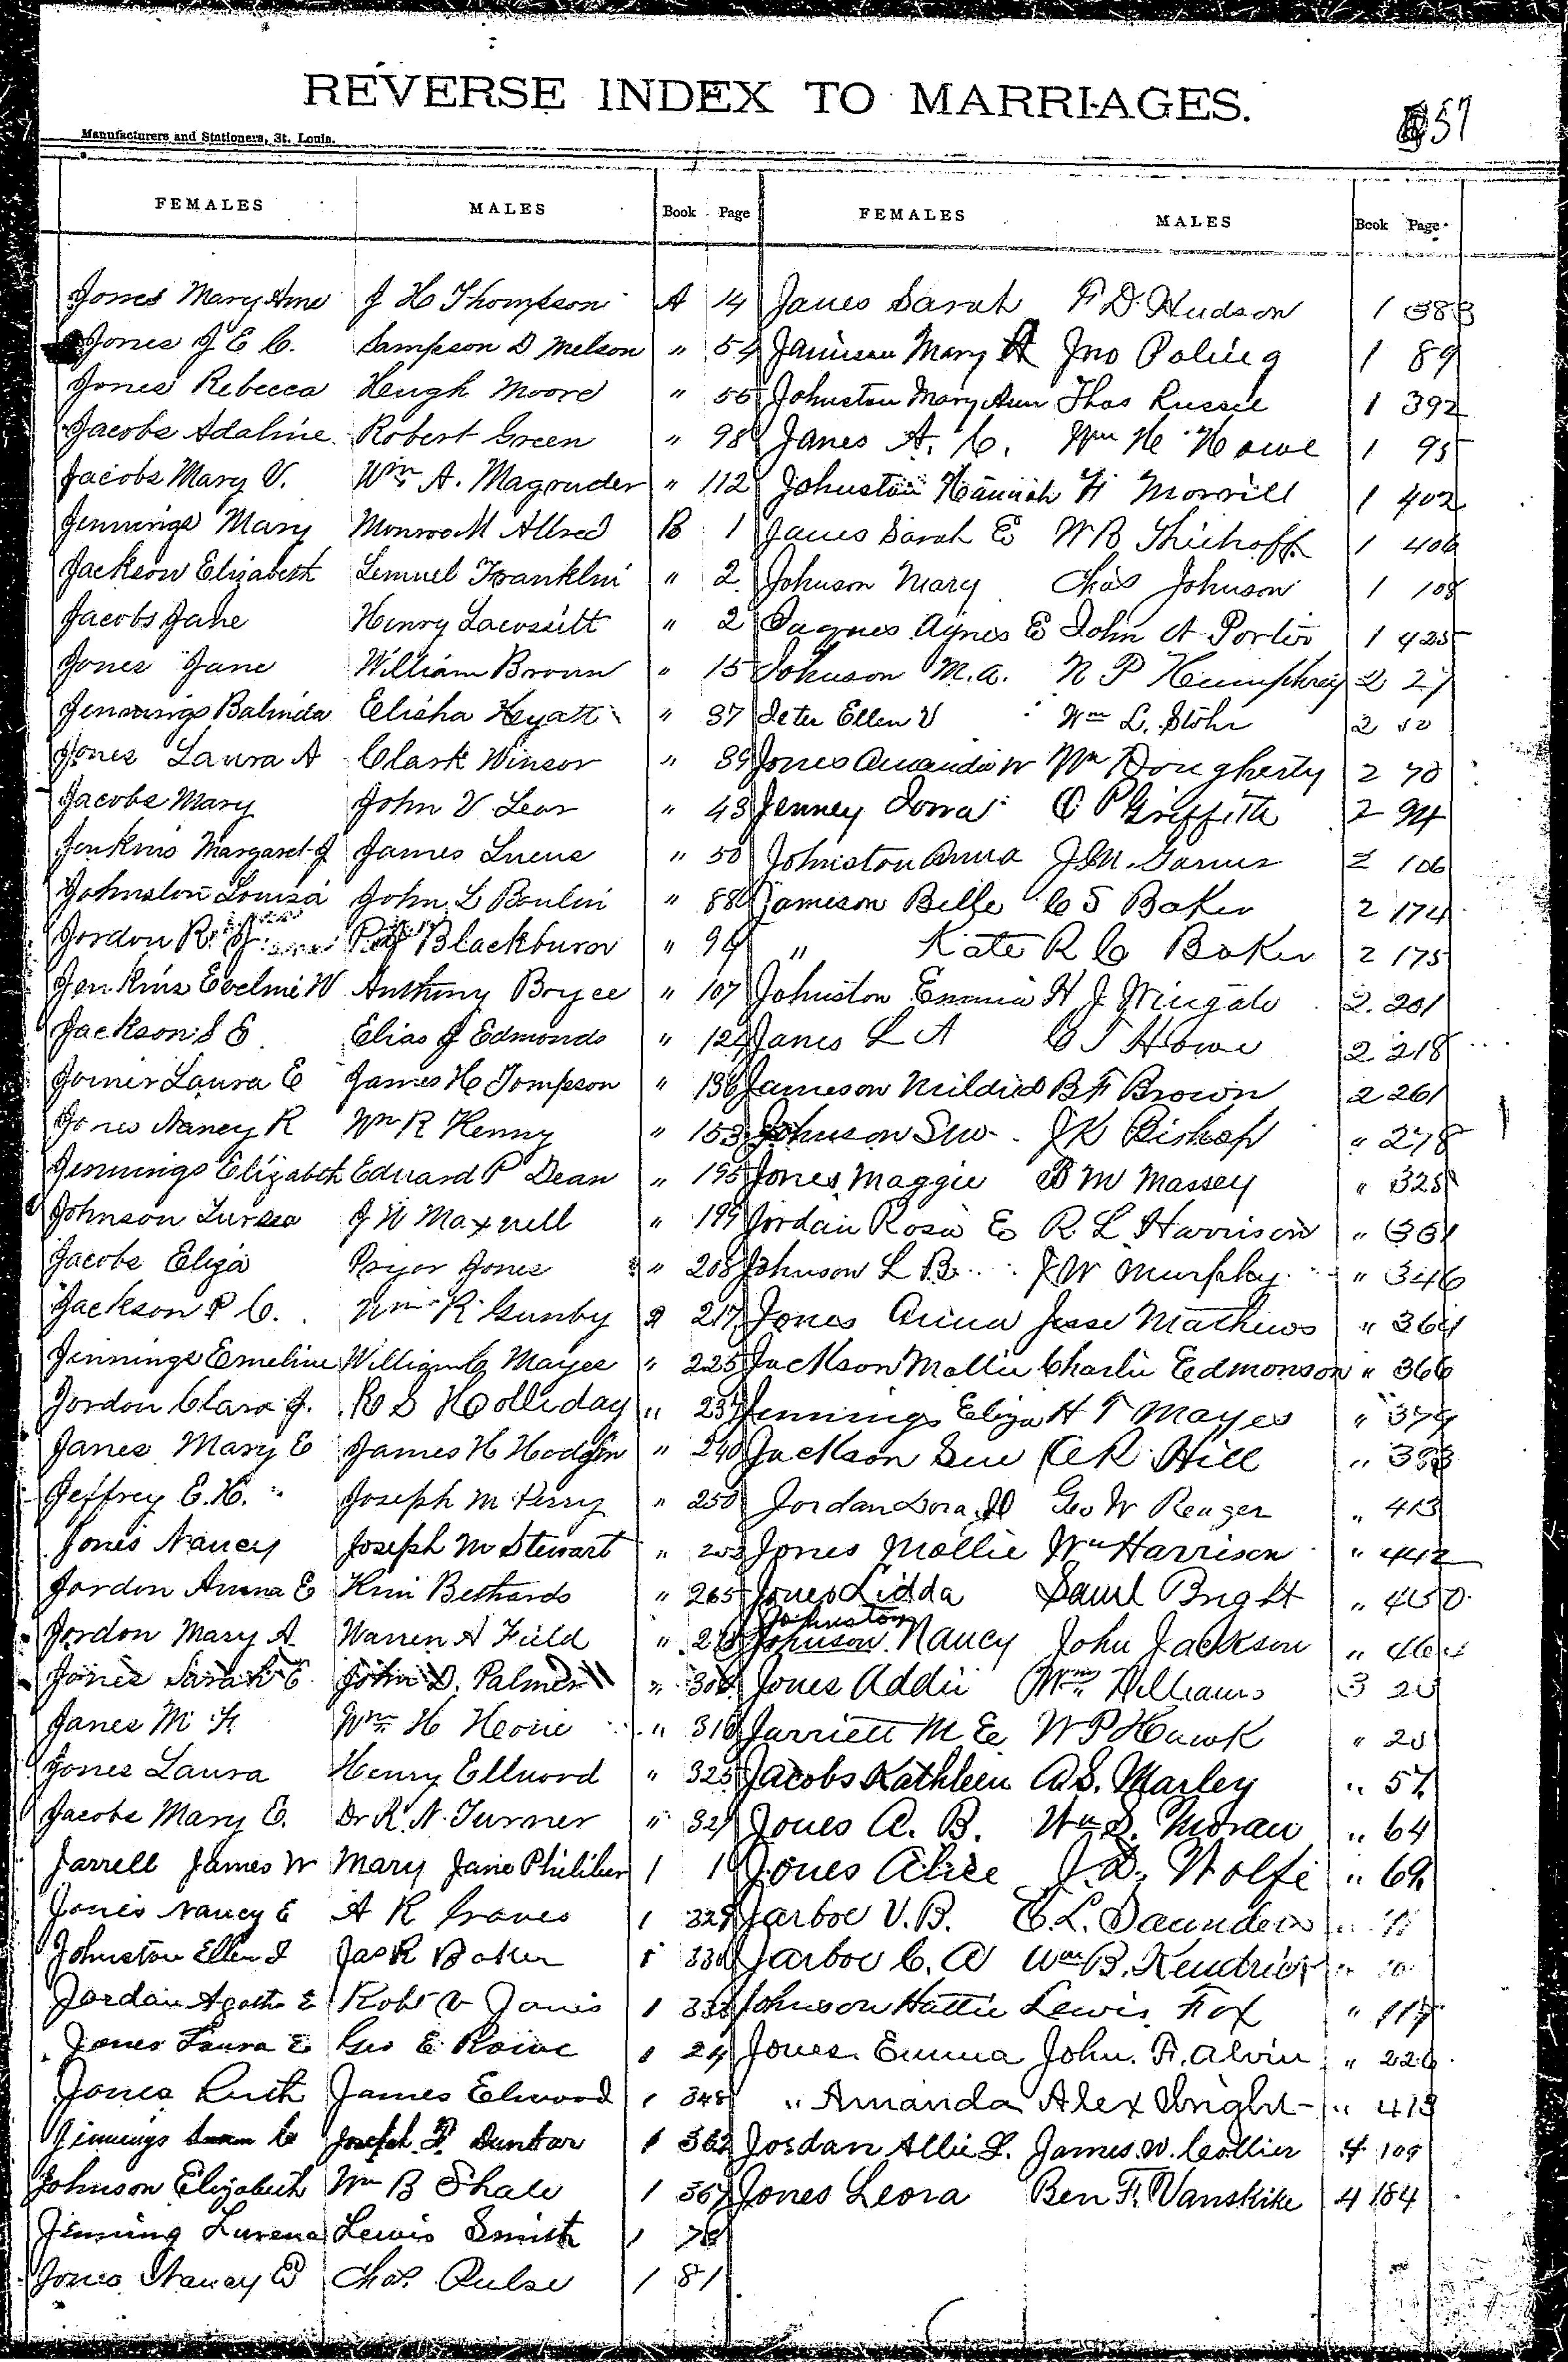 REVERSE INDEX TO MARRIAGES.
57
Manufacturers and Stationers, St. Louis.
FEMALES MALES Book Page FEMALES MALES Book Page
Jones Mary Ame J H Thompson A 14 Janes Sarah F D. Hudson 1 383
Jones J E C. Sampson D Melson " 54 Jamison Mary A Jno Poling 1 89
Jones Rebecca Heugh Moore " 55 Johnston Mary Ann Thos Russel 1 392
Jacobs Adaline Robert Green " 98 Janes A. C. Wm H Howe 1 95
Jacobs Mary V. Wm A. Magruder " 112 Johnston Hannah F Morrill 1 402
Jennings Mary Monroe M Allred B 1 Janes Sarah E W B Thiehoff 1 406
Jackson Elizabeth Lemuel Franklin " 2 Johnson Mary Chas Johnson 1 108
Jacobs Jane Henry " 2 Jaques Agnes E John A Porter 1 425
Jones Jane William Brown " 15 Johnson M. A. N P Humphrey 2 27
Jennings Balinda Elisha Hyatt " 37 Jeter Ellen V Wm L. Stohr 2 50
Jones Laura A Clark Winsor " 39 Jones Amanda W Wm Dougherty 2 70
Jacobs Mary John V Lear " 43 Jenney Iowa O P Griffith 2 94
Jenkins Margaret J James Lucus " 50 Johnston Anna J M. Garner 2 106
Johnston Louisa John L Boulin " 88 Jameson Belle C S Baker 2 174
Jordon R. J Blackburn " 94 " Kate R C Baker 2 175
Jenkins Eveline W Anthony Boyce " 107 Johnston Emma H J Wingate 2. 201
Jackson S E Elias J Edmonds " 124 Janes L A C T Howe 2 218
Joiner Laura E James H Tompson " 136 Jameson Mildred B F Brown 2 261
Jones Nancy R Wm R Kenny " 153 Johnson Sue J K Bishop " 278
Jennings Elizabeth Edward P Dean " 195 Jones Maggie B M Massey " 325
Johnson Lurssa J W Maxwell " 199 Jordan Rosa E R. L. Harrison " 331
Jacobs Eliza Pryor Jones " 208 Johnson L B. J W Murphy " 346
Jackson P C. Wm R Gunby " 217 Jones Anna Jesse Mathews " 364
Jennings Emeline William C Mayes " 225 Jackson Mollie Charlie Edmonson " 366
Jordon Clara J. R S Holliday " 237 Jennings Eliza H T Mayes " 379
Janes Mary E James H Hodgin " 240 Jackson Sue C R Hill " 393
Jeffrey E. H. Joseph M Perry " 250 Jordan Dora Geo W Reager " 413
Jones Nancy Joseph M Stewart " Jones Mollie Wm Harrison " 442
Jordon Anna E Bethards " 265 Jones Lidda Saml Bright " 450
Johnston
Jordon Mary A Warren A Field " Johnson Nancy John Jackson " 464
Jones Sarah E John D. Palmer " 308 Jones Addie Wm Williams 3 20
Janes M F Wm H " 316 Jarriett M E W P Hawk " 20
Jones Laura Henry Ellword " 325 Jacobs Kathleen A. S. Marley " 57
Jacobs Mary E. Dr R. N. Turner " 327 Jones A. B. Wm S. Moran " 64
Jarrell James W Mary Jane Philiber 1 1 Jones Alice J. D. Wolfe " 69
Jones Nancy E A R Graves 1 329 Jarboe V. B. E. L. Saunders "
Johnston Ellen J Jas R Baker 1 330 Jarboe C. A Wm B. Kendrick "
Jordan Agatha E Robt V Janis 1 333 Johnson Hattie Lewis Fox " 117
Jones Laura E Geo E Roine 1 24 Jones Emma John. F. Alvin " 226
Jones Ruth James Elwood 1 348 " Amanda Alex Bright " 413
Jennings Joseph F Dunbar 1 362 Jordan Allie L. James W. Collier 4 109
Johnson Elizabeth Wm B Shale 1 367 Jones Leora Ben F. Vanskike 4 184
Jenning Lurena Lewis Smith 1 78
Jones Nancy E Chas. Pulse 1 81